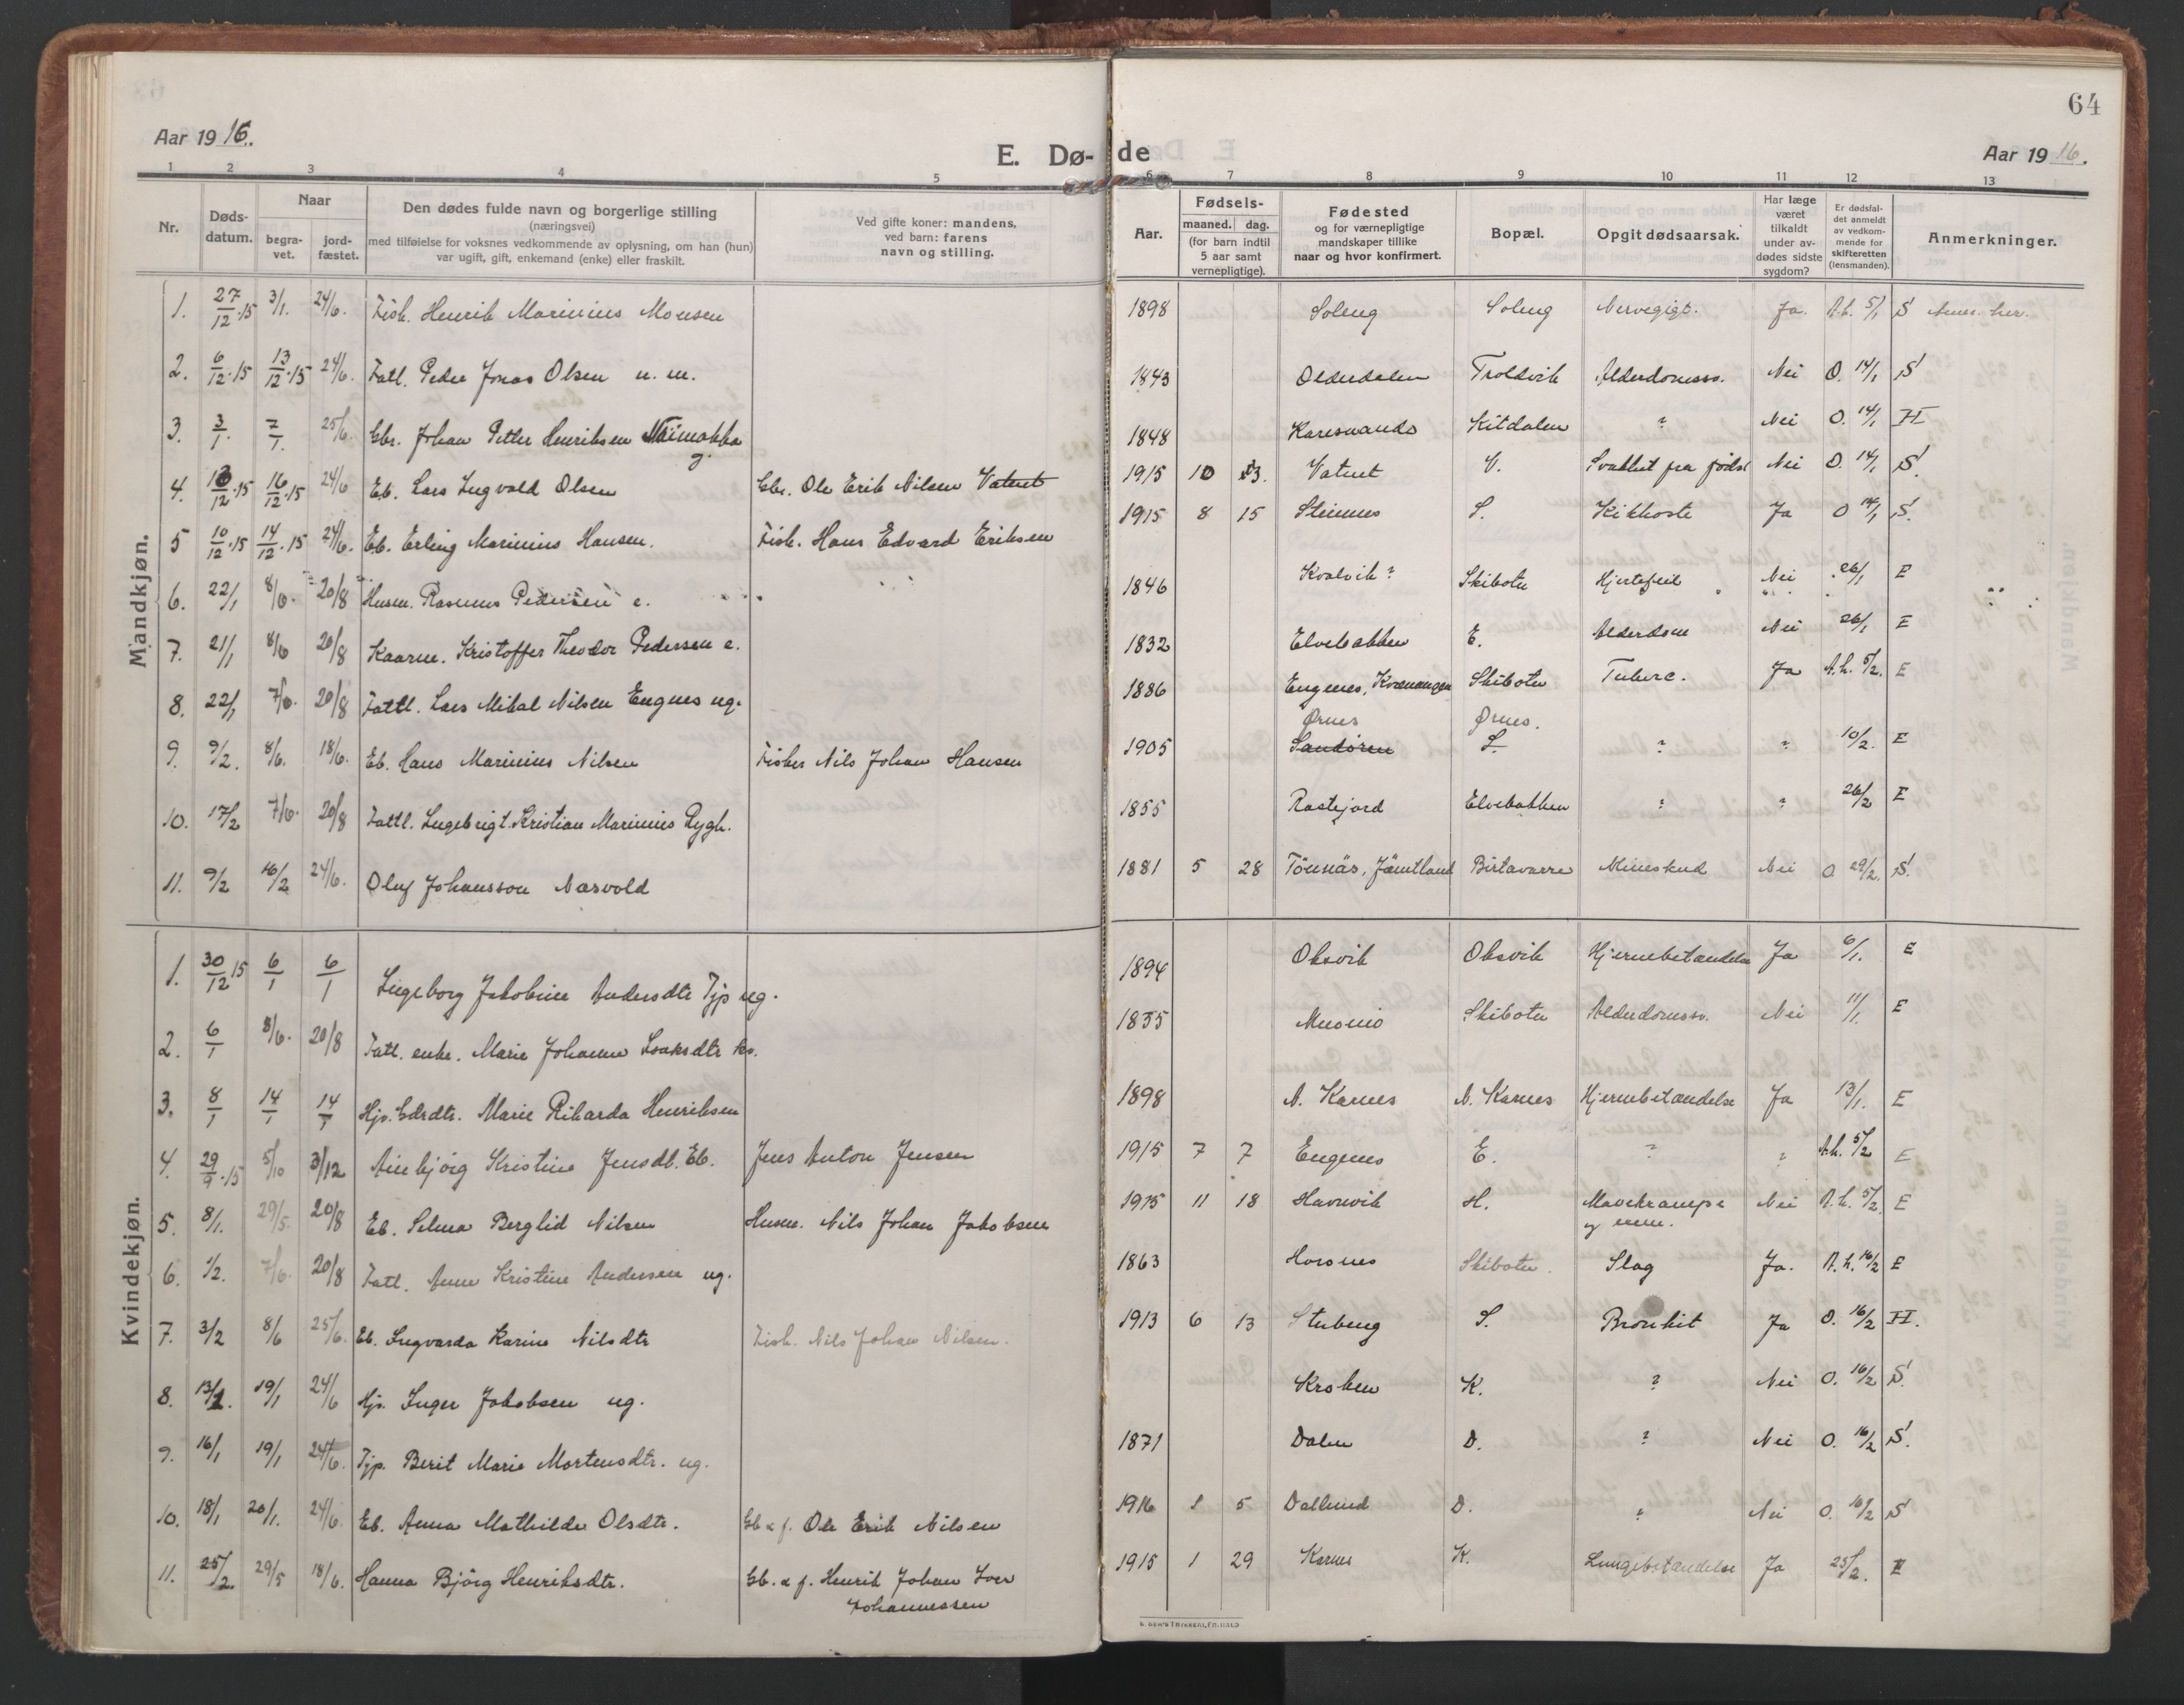 64
Aar 1916.
E. Dø-de
Aar 1916.
1 2 3 4 5 6 7 8 9 10 11 12 13
Nr.
Døds-datum.
Naar
begra-vet.
jord-fæstet.
Den dødes fulde navn og borgerlige stilling
(næringsvei)
med tilføielse for voksnes vedkommende av oplysning, om han (hun)
var ugift, gift, enkemand (enke) eller fraskilt.
Ved gifte koner: mandens,
ved barn: farens
navn og stilling.
Aar.
Fødsels-
maaned. dag.
(for barn indtil
5 aar samt
vernepligtige).
Fødested
og for værnepligtige
mandskaper tillike
naar og hvor konfirmert.
Bopæl.
Opgit dødsaarsak.
Har læge
været
tilkaldt
under av-
dødes sidste
sygdom?
Er dødsfal-
det anmeldt
av vedkom-
mende for
skifteretten
(lensmanden).
Anmerkninger.
Mandkjøn.
1. 27/12.15 3/1. 24/6. Fisk. Henrik Marinius Monsen 1898 Soleng Soleng Nervegigt. Ja. A.h. 5/1 S Anm. her.
2. 6/12.15 13/12.15 24/6. Fatl. Peder Jonas Olsen u. m. 1843 Olderdalen Troldvik Alderdomssv. Nei O. 14/1 S
3. 3/1. 7/1. 25/6. Gbr. Johan Petter Henriksen Naimakka g. 1848 Karesuando Kitdalen ? Nei O. 14/1 H
4. 13/12.15 16/12.15 24/6 Eb. Lars Ingvald Olsen Gbr. Ole Erik Nilsen Vatnet 1915 10 13. Vatnet V. Svakhet fra fødsl Nei O. 14/1 S.
5 10/12.15 14/12.15 24/6. Eb. Erling Marinius Hansen. Fisk. Hans Edvard Eriksen 1915 8 15 Steinnes S. Kikhoste Ja O 14/1 S.
6. 22/1 8/6. 20/8 Husm. Rasmus Pedersen e. 1846 Kvalvik? Skibotn Hjertefeil Nei 26/1 E
7. 21/1 8/6 20/8 Kaarm. Kristoffer Theodor Pedersen e. 1832 Elvebakken E. Alderdom Nei 26/1 E
8. 22/1 7/6. 20/8 Fattl. Lars Mikal Nilsen Engnes ug. 1886 Engenes, Kvænangen Skibotn Tuberc. Ja A.h. 5/2. E
9. 9/2. 8/6. 18/6. Eb. Hans Marinius Nilsen Fisker Nils Johan Hansen 1905 Ørnes Sandøren Ørnes. S. ? ? 10/2. E
10. 17/2 7/6. 20/8 Fattl. Ingebrigt Kristian Marinius Rygh. 1855 Rastefjord Elvebakken ? ? 26/2 E
11. 9/2 16/2 24/6. Oluf Johansson Narvold 1881 5 28 Tönnäs, Jämtland Birtavarre Mineskud Nei O 29/2. S.
Kvindekjøn.
1. 30/12 15 6/1 6/1 Ingeborg Jakobine Andersdtr Tjp ug. 1894 Oksvik Oksvik Hjernebetændelse Ja 6/1. E
2. 6/1 8/6. 20/8 Fatl. enke. Marie Johanne Isaksdtr kv. 1835 Muonio Skibotn Alderdomssv. Nei 11/1. E
3. 8/1 14/1 14/1 Hjp. Gdrdtr. Marie Rikarda Henriksen 1898 N. Karnes N. Karnes Hjernebetændelse Ja 13/1. E
4. 29/9.15 5/10 3/12 Ainbjörg Kristine Jensdt. Eb. Jens Anton Jensen 1915 7 7 Engenes E. ? ? A.h. 5/2 E
5. 8/1. 29/5. 20/8 Eb. Selma Berglid Nilsen Husm. Nils Johan Jakobsen 1915 11 18 Havnvik H. Mavekrampe Nei A.h. 5/2. E
6. 1/2. 7/6. 20/8 Fatl. Anne Kristine Andersen ug. 1863 Horsnes Skibotn. Slag Ja. A.h. 16/2 E
7. 3/2 8/6 25/6. Eb. Ingvarda Karine Nilsdtr Fisk. Nils Johan Nilsen. 1913 6 13 Stubeng S. Bronkit Ja O. 16/2 H.
8. 13/1. 19/1 24/6 Hjp. Inger Jakobsen ug. Kroken K. ? Nei O. 16/2 S.
9. 16/1 19/1 24/6. Tjp. Berit Marie Mortensdtr. ug. 1871 Dalen D. ? Nei O. 16/2 S.
10. 18/1 20/1. 24/6. Eb. Anna Mathilde Olsdtr. Gb & f. Ole Erik Nilsen 1916 1 5 Dallund D. ? Nei O. 16/2 S
11. 25/2. 29/5 18/6. Hanna Bjørg Henriksdtr. Gb. & f. Henrik Johan Iver Johannessen 1915 1 29 Karnes K. Lungebetændelse Ja 25/2. E